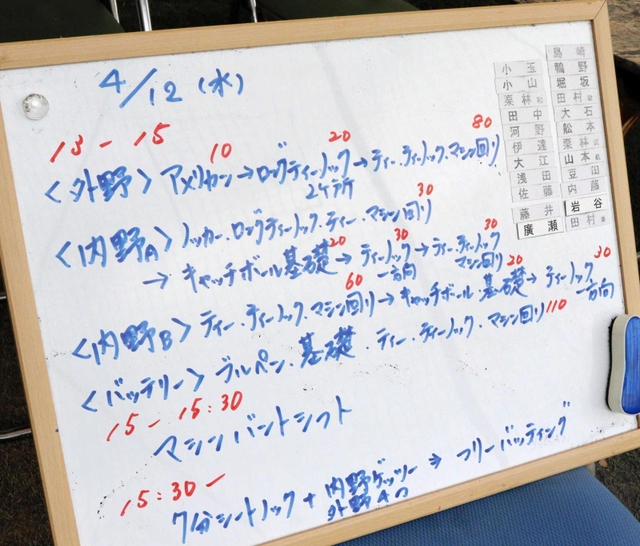 4/12 (水)
13-15
10 20 80
<外野> アメリカン→ロングティーノック→ティー・ティーノック・マシン回り
2ヶ所
30
<内野A> ノッカー・ロングティーノック・ティー・マシン回り
20 30 30
→キャッチボール基礎→ティーノック→ティー・ティーノック
一方向 マシン回り 20
60 30
<内野B> ティー・ティーノック・マシン回り→キャッチボール・基礎→ティーノック
一方向
<バッテリー> ブルペン・基礎・ティー・ティーノック・マシン回り 110
15-15:30
マシンバントシフト
15:30-
7分シートノック+内野ゲッツー ⇒ フリーバッティング
外野4つ
小玉
小山
栗林
田中
河野
伊達
大江
浅田
佐藤
藤井
廣瀬
島崎
鴨野
堀坂
田村
大石
舩本
栗林
山本
豆田
内藤
岩谷
田村